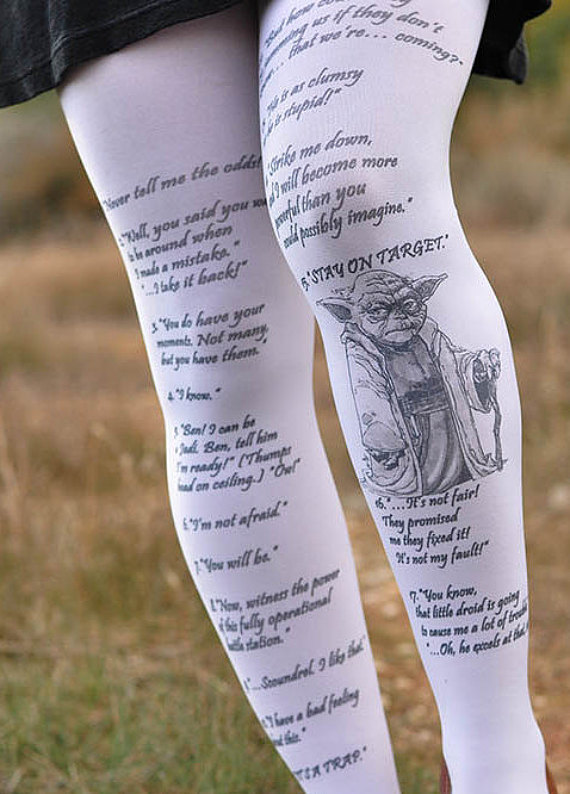 Never tell me the odds!
"Well, you said you
to be around when
I made a mistake."
"...I take it back!"
3. "You do have your
moments. Not many,
but you have them."
4. "I know."
"Ben! I can be
Jedi. Ben, tell him
I'm ready!" (Thumps
head on ceiling.) "Ow!"
6. "I'm not afraid."
7. "You will be."
8. "Now, witness the power
of this fully operational
battle station."
"...Scoundrel. I like that."
"I have a bad feeling
about this."
IT'S A TRAP."
But how
us if they don't
that we're... coming?
is as clumsy
is stupid!"
"Strike me down,
and I will become more
powerful than you
could possibly imagine."
15. "STAY ON TARGET."
16. "...It's not fair!
They promised
me they fixed it!
It's not my fault!"
17. "You know,
that little droid is going
to cause me a lot of trouble
"...Oh, he excels at that,